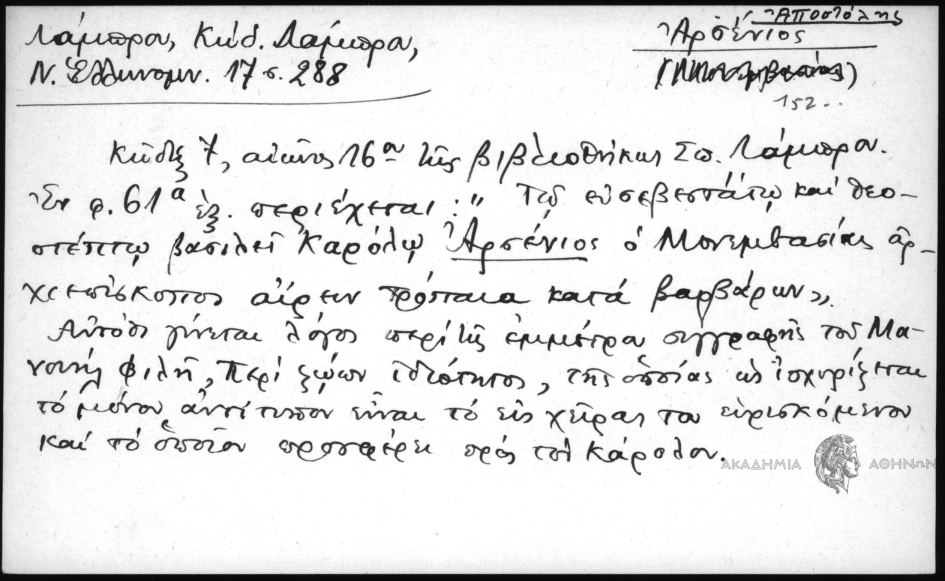 Λάμπρου, Κώδ. Λάμπρου,
Ν. Ἑλληνομν. 17 σ. 288
Ἀποστόλης
Ἀρσένιος
(Μονεμβασίας)
152..
Κώδιξ 7, αἰῶνος 16ου τῆς βιβλιοθήκης Σπ. Λάμπρου.
Ἐν φ. 61α ἑξ. περιέχεται: " Τῷ εὐσεβεστάτῳ καὶ θεο-
στέπτῳ βασιλεῖ Καρόλῳ Ἀρσένιος ὁ Μονεμβασίας ἀρ-
χιεπίσκοπος αἴρειν τρόπαια κατὰ βαρβάρων».
Αὐτόθι γίνεται λόγος περὶ τῆς ἐμμέτρου συγγραφῆς τοῦ Μα-
νουὴλ Φιλῆ, Περὶ ζῴων ἰδιότητος, τῆς ὁποίας ὡς ἰσχυρίζεται
τὸ μόνον ἀντίτυπον εἶναι τὸ εἰς χεῖρας του εὑρισκόμενον
καὶ τὸ ὁποῖον προσφέρει πρὸς τὸν Κάρολον.
ΑΚΑΔΗΜΙΑ ΑΘΗΝΩΝ